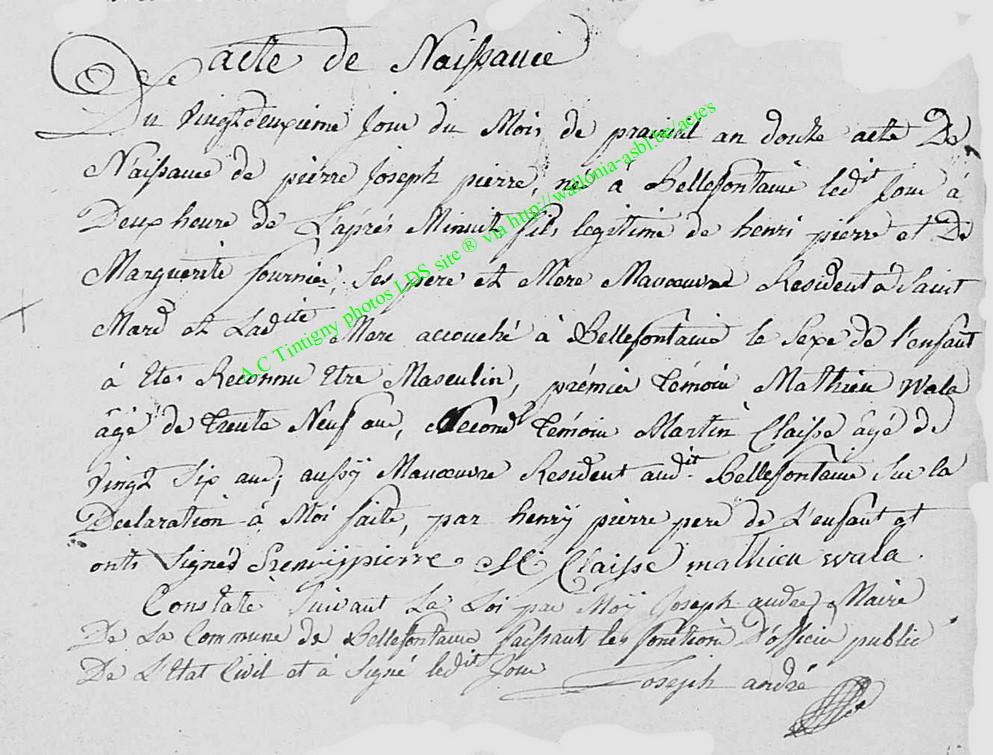 acte de Naissance
Du Vingtdeuxieme Jour du Mois de prairial an douze acte De
Naissance de pierre Joseph pierre, né à Bellefontaine ledit Jour à
Deux heure de L'aprés Minuit fils legitime de henri pierre et De
Marguerite fournier, Ses pere et Mere Manoeuvre Resident à Saint
Mard et Ladite Mere accouché à Bellefontaine le Sexe de l'enfant
à Eté Reconnu Etre Masculin, prémier témoin Mathieu Wala
âgé de trente Neuf ans, Second témoin Martin Claisse âgé de
Vingt Six ans, aussÿ Manoeuvre Resident audit Bellefontaine Sur la
Declaration à Moi faite, par henrÿ pierre pere de L'enfant et
ont Signés henrij pierre M Claisse mathieu wala.
Constaté Suivant La Loi par Moÿ Joseph andré Maire
De La Commune de Bellefontaine faissant les fonction D'officier public
De L'Etat Civil et à Signé ledit Jour Joseph andré
A C Tintigny photos LDS site ® via http://wallonia-asbl.eu/actes